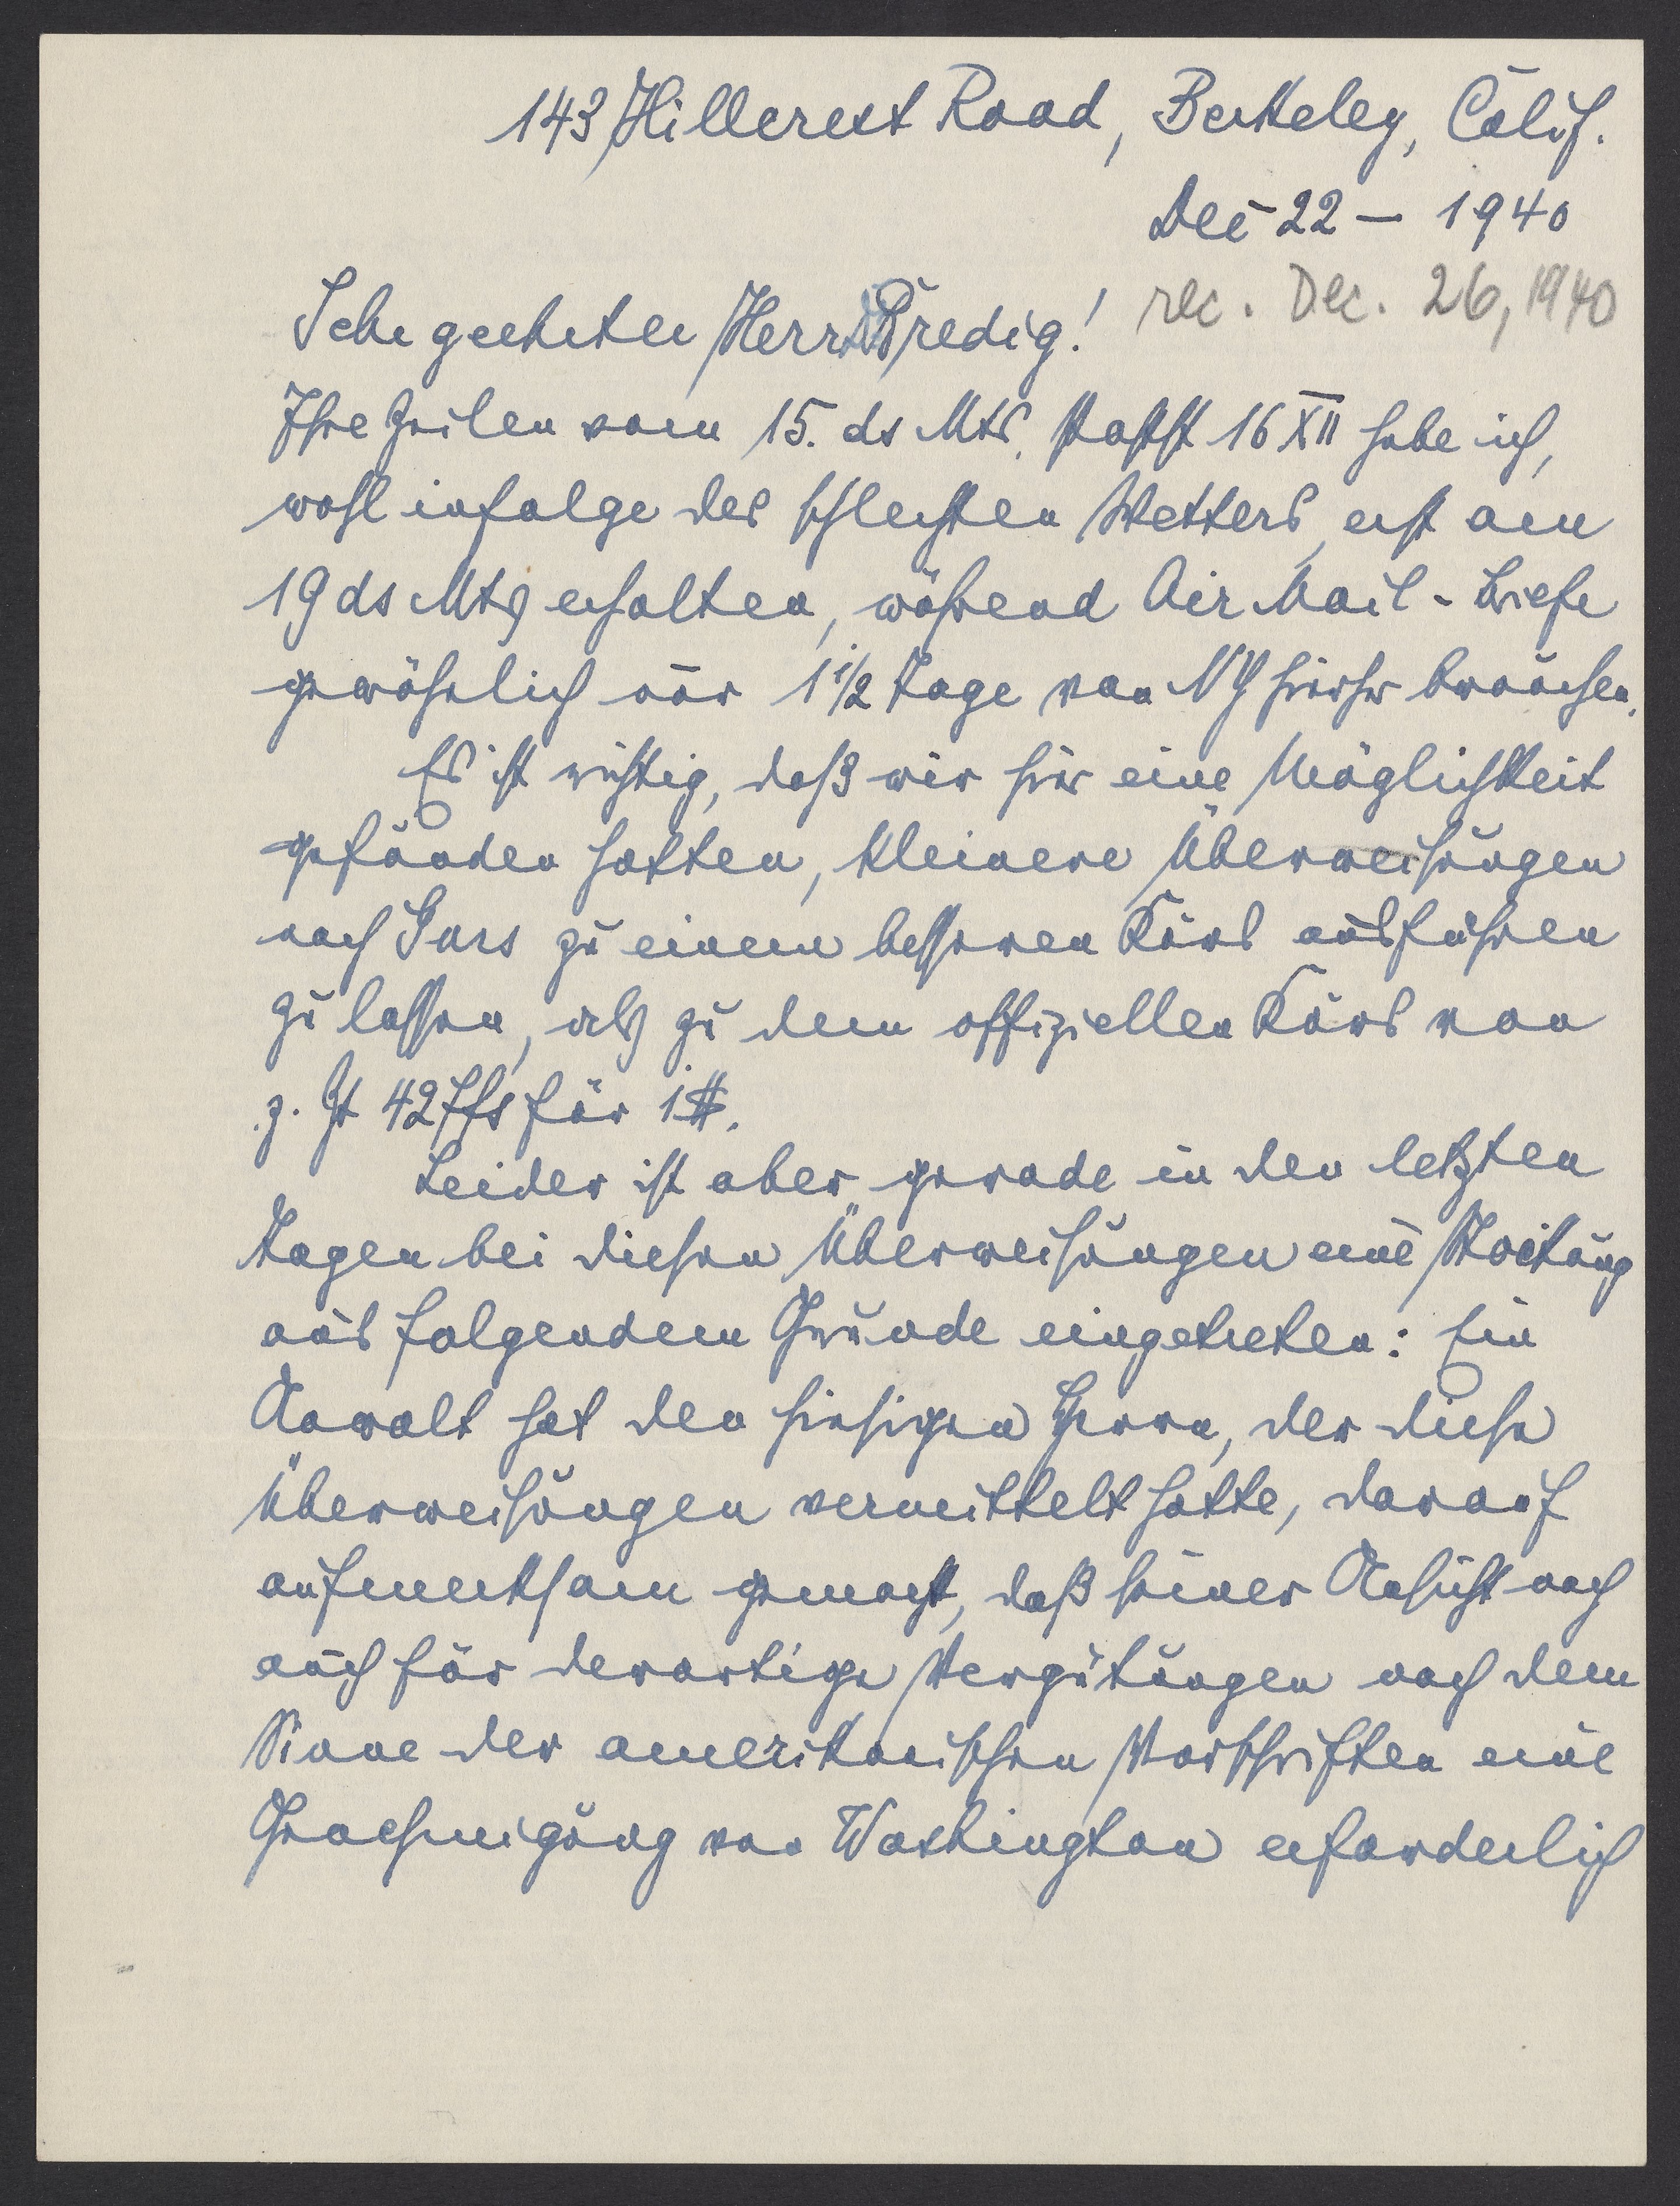 143 Hillcrest Road, Berkeley, Calif.
Dec 22 – 1940
rec. Dec. 26, 1940
Sehr geehrter Herr Bredig!
Ihre Zeilen vom 15. ds Mts, 16 XII habe ich,
wohl infolge des schlechten Wetters, erst am
19 ds Mts erhalten, während Air Mail-Briefe
gewöhnlich nur 1 1/2 Tage von NY hierher brauchen.
Es ist richtig, daß wir hier eine Möglichkeit
gefunden hatten, kleinere Überweisungen
nach Gurs zu einem besseren Kurs ausführen
zu lassen, als zu dem offiziellen Kurs von
z. Zt 42 ffs für 1 $.
Leider ist aber gerade in den letzten
Tagen bei diesen Überweisungen eine Stockung
aus folgendem Grunde eingetreten: Ein
Anwalt hat den hiesigen Herrn, der diese
Überweisungen vermittelt hatte, darauf
aufmerksam gemacht, daß seiner Ansicht nach
auch für derartige Vergütungen nach dem
Sinne der amerikanischen Vorschriften eine
Genehmigung von Washington erforderlich